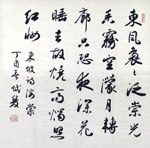 東風裊々泛崇光
香霧空蒙月轉
廊只恐夜深花
睡去故燒高燭照
紅妝
東坡詩海棠
丁酉春